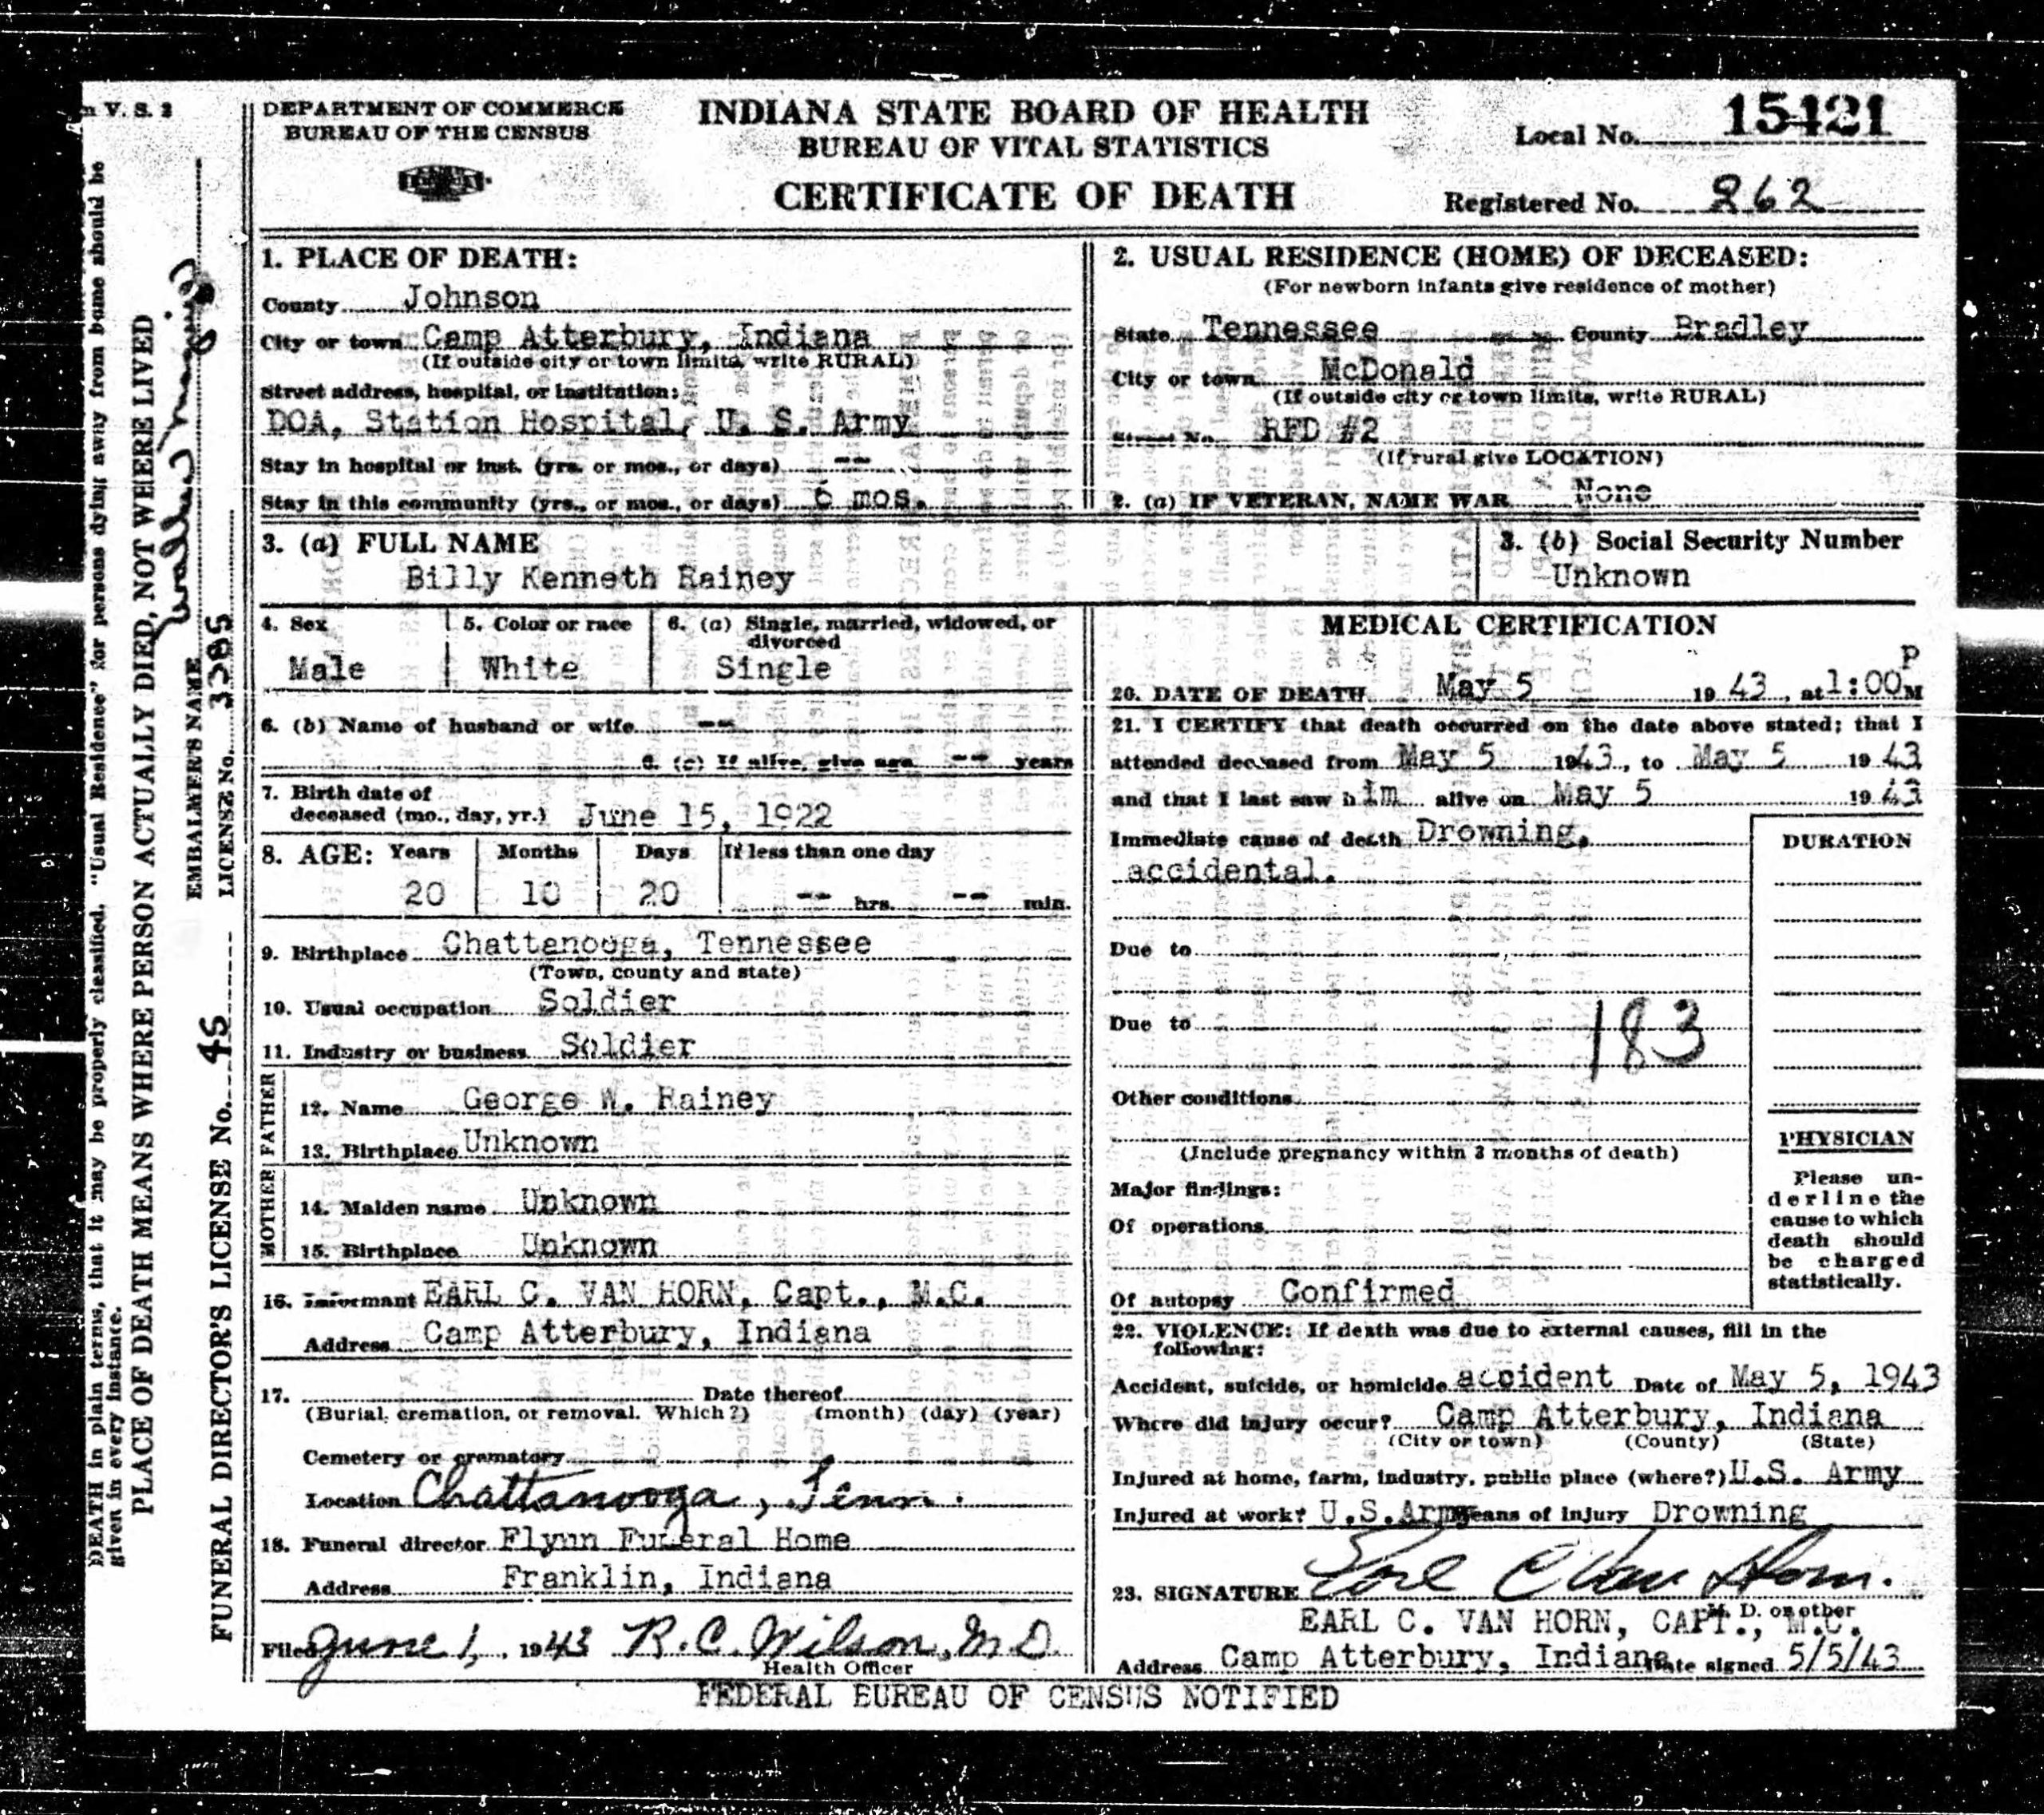 m V. S. 3
DEPARTMENT OF COMMERCE
BUREAU OF THE CENSUS
INDIANA STATE BOARD OF HEALTH
BUREAU OF VITAL STATISTICS
CERTIFICATE OF DEATH
Local No. 15421
Registered No. 262
1. PLACE OF DEATH:
County Johnson
City or town Camp Atterbury, Indiana
(If outside city or town limits, write RURAL)
Street address, hospital, or institution:
DOA, Station Hospital, U. S. Army
Stay in hospital or inst. (yrs. or mos., or days) --
Stay in this community (yrs., or mos., or days) 6 mos.
2. USUAL RESIDENCE (HOME) OF DECEASED:
(For newborn infants give residence of mother)
State Tennessee County Bradley
City or town McDonald
(If outside city or town limits, write RURAL)
Street No. RFD #2
(If rural give LOCATION)
2. (a) IF VETERAN, NAME WAR None
3. (a) FULL NAME
Billy Kenneth Rainey
3. (b) Social Security Number
Unknown
4. Sex
Male
5. Color or race
White
6. (a) Single, married, widowed, or
divorced
Single
6. (b) Name of husband or wife --
6. (c) If alive, give age -- years
7. Birth date of
deceased (mo., day, yr.) June 15, 1922
8. AGE: Years Months Days If less than one day
20 10 20 -- hrs. -- min.
9. Birthplace Chattanooga, Tennessee
(Town, county and state)
10. Usual occupation Soldier
11. Industry or business Soldier
FATHER
12. Name George W. Rainey
13. Birthplace Unknown
MOTHER
14. Maiden name Unknown
15. Birthplace Unknown
16. Informant EARL C. VAN HORN, Capt., M.C.
Address Camp Atterbury, Indiana
17. Date thereof
(Burial, cremation, or removal. Which?) (month) (day) (year)
Cemetery or crematory
Location Chattanooga, Tenn.
18. Funeral director Flynn Funeral Home
Address Franklin, Indiana
Filed June 1, 1943 R. C. Wilson, M.D.
Health Officer
MEDICAL CERTIFICATION
20. DATE OF DEATH May 5 1943, at 1:00 P M
21. I CERTIFY that death occurred on the date above stated; that I
attended deceased from May 5 1943, to May 5 1943
and that I last saw him alive on May 5 1943
Immediate cause of death Drowning,
accidental.
DURATION
Due to
Due to
183
Other conditions
(Include pregnancy within 3 months of death)
Major findings:
Of operations
Of autopsy Confirmed
PHYSICIAN
Please un-
derline the
cause to which
death should
be charged
statistically.
22. VIOLENCE: If death was due to external causes, fill in the
following:
Accident, suicide, or homicide accident Date of May 5, 1943
Where did injury occur? Camp Atterbury, Indiana
(City or town) (County) (State)
Injured at home, farm, industry, public place (where?) U.S. Army
Injured at work? U.S. Army Means of injury Drowning
23. SIGNATURE Earl C Van Horn.
M. D. or other
EARL C. VAN HORN, CAPT., M.C.
Address Camp Atterbury, Indiana Date signed 5/5/43
FEDERAL BUREAU OF CENSUS NOTIFIED
DEATH in plain terms, that it may be properly classified. "Usual Residence" for persons dying away from home should be
given in every instance.
PLACE OF DEATH MEANS WHERE PERSON ACTUALLY DIED, NOT WHERE LIVED
EMBALMER'S NAME
LICENSE No. 3385
FUNERAL DIRECTOR'S LICENSE No. 45